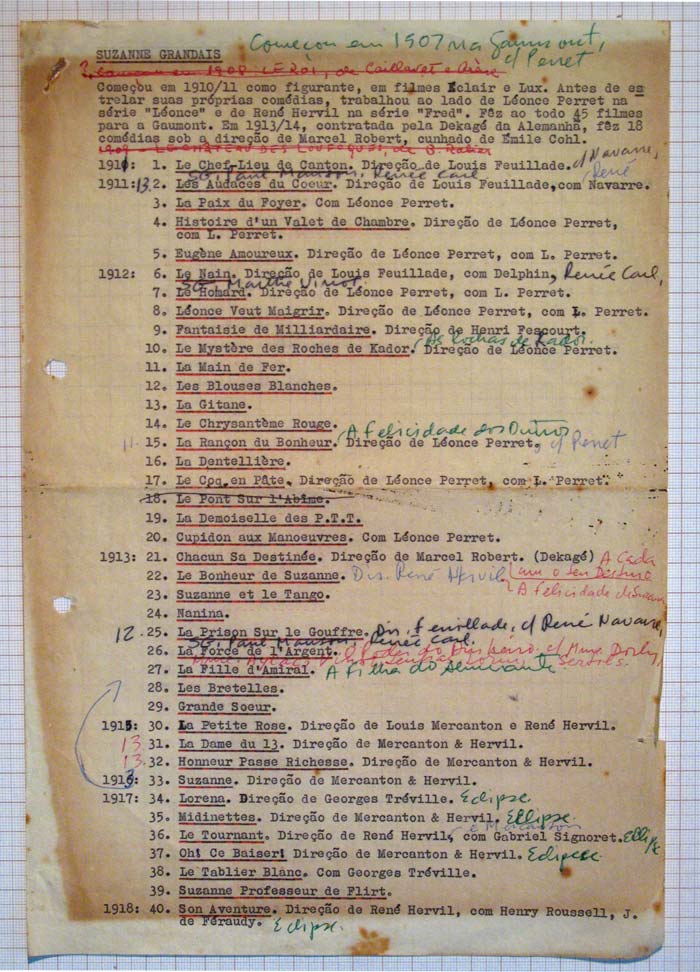 SUZANNE GRANDAIS
Começou em 1907 na Gaumont,
c/ Perret
? começou em 1908 LE ROI, de Caillavet e
Começou em 1910/11 como figurante, em filmes Eclair e Lux. Antes de es
trelar suas próprias comédias, trabalhou ao lado de Léonce Perret na
série "Léonce" e de René Hervil na série "Fred". Fêz ao todo 45 filmes
para a Gaumont. Em 1913/14, contratada pela Dekagé da Alemanha, fêz 18
comédias sob a direção de Marcel Robert, cunhado de Émile Cohl.
c/ Navarre,
René
1911: 1. Le Chef-Lieu de Canton. Direção de Louis Feuillade.
Renée Carl
1911: 13. 2. Les Audaces du Coeur. Direção de Louis Feuillade,com Navarre.
3. La Paix du Foyer. Com Léonce Perret.
4. Histoire d'un Valet de Chambre. Direção de Léonce Perret,
com L. Perret.
5. Eugène Amoureux. Direção de Léonce Perret, com L. Perret.
1912: 6. Le Nain. Direção de Louis Feuillade, com Delphin, Renée Carl,
7. Le Homard. Direção de Léonce Perret, com L. Perret.
8. Léonce Veut Maigrir. Direção de Léonce Perret, com L. Perret.
9. Fantaisie de Milliardaire. Direção de Henri Fescourt.
As Rochas de Kador.
10. Le Mystère des Roches de Kador. Direção de Léonce Perret.
11. La Main de Fer.
12. Les Blouses Blanches.
13. La Gitane.
14. Le Chrysantème Rouge.
A felicidade dos Outros
11. 15. La Rançon du Bonheur. Direção de Léonce Perret, c/ Perret
16. La Dentellière.
17. Le Cpq en Pâte. Direção de Léonce Perret, com L. Perret.
18. Le Pont Sur l'Abîme.
19. La Demoiselle des P.T.T.
20. Cupidon aux Manoeuvres. Com Léonce Perret.
1913: 21. Chacun Sa Destinée. Direção de Marcel Robert. (Dekagé) A Cada
um o seu Destino
22. Le Bonheur de Suzanne. Dir. René Hervil
A felicidade de Suzana
23. Suzanne et le Tango.
24. Nanina.
12. 25. La Prison Sur le Gouffre. Dir. Feuillade, c/ René Navarre,
Renée Carl.
26. La Force de l'Argent. O Poder do Dinheiro. c/ Mme. Dorly,
27. La Fille d'Amiral. A filha do almirante
28. Les Bretelles.
29. Grande Soeur.
1915: 30. La Petite Rose. Direção de Louis Mercanton e René Hervil.
13. 31. La Dame du 13. Direção de Mercanton & Hervil.
13. 32. Honneur Passe Richesse. Direção de Mercanton & Hervil.
1916: 33. Suzanne. Direção de Mercanton & Hervil.
3
1917: 34. Lorena. Direção de Georges Tréville. Eclipse.
35. Midinettes. Direção de Mercanton & Hervil. Ellipse.
e Mercanton
36. Le Tournant. Direção de René Hervil, com Gabriel Signoret. Ellipse
37. Oh! Ce Baiser! Direção de Mercanton & Hervil. Eclipse.
38. Le Tablier Blanc. Com Georges Tréville.
39. Suzanne Professeur de Flirt.
1918: 40. Son Aventure. Direção de René Hervil, com Henry Roussell, J.
de Féraudy. Eclipse.